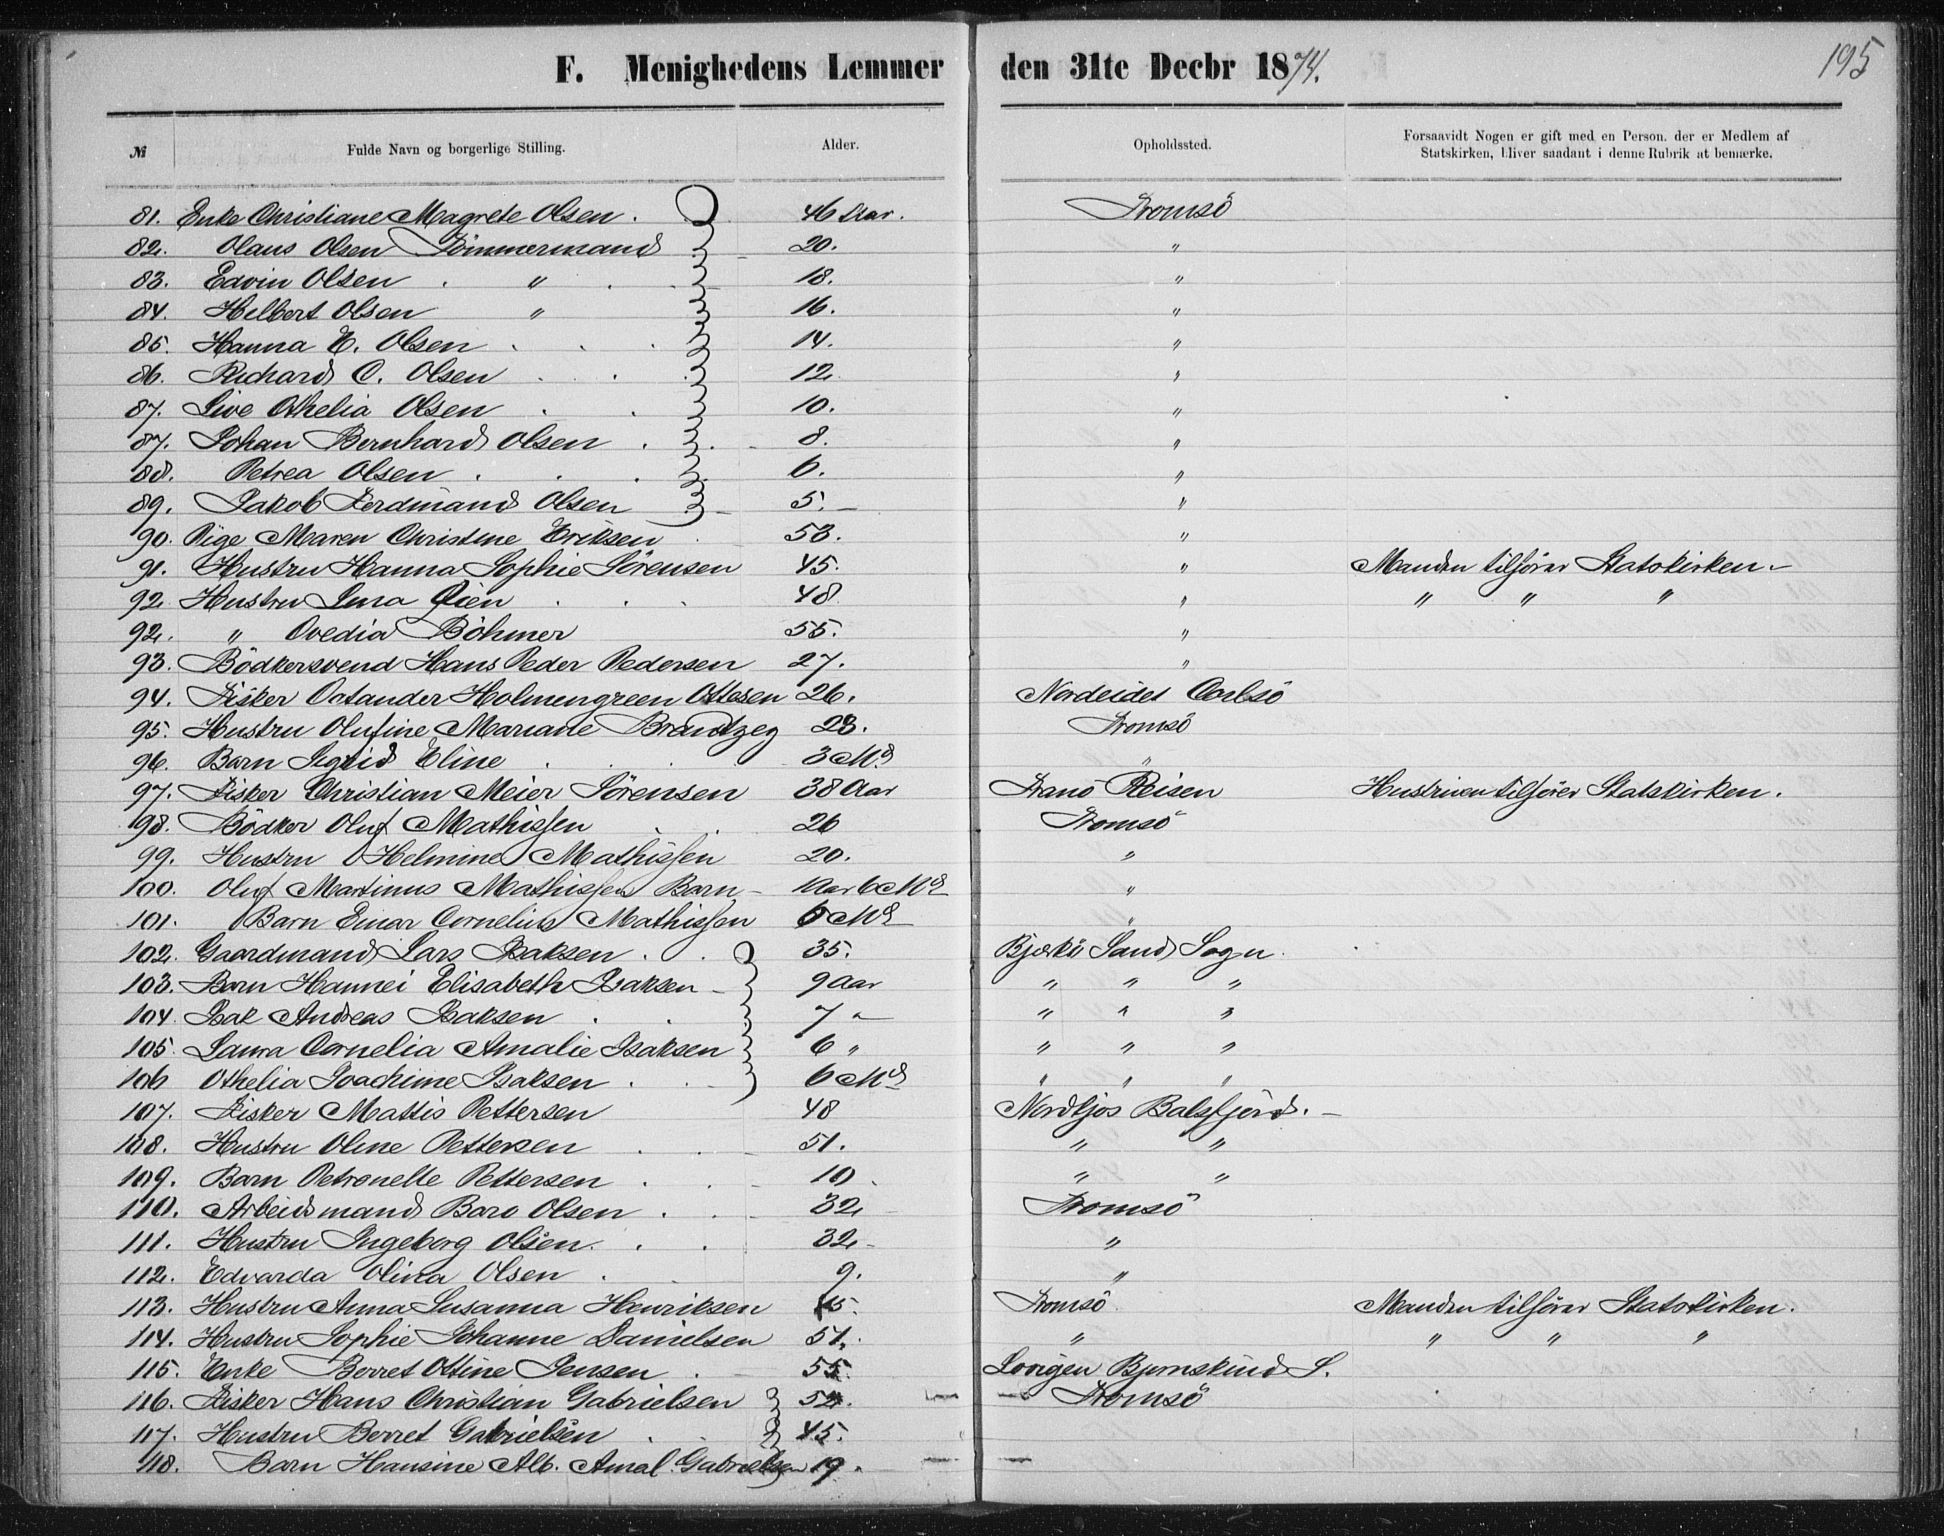 F. Menighedens Lemmer den 31te Decbr 1874. 195
№ Fulde Navn og borgerlige Stilling. Alder. Opholdssted. Forsaavidt Nogen er gift med en Person, der er Medlem af
Statskirken, bliver saadant i denne Rubrik at bemærke.
81. Enke Christiane Magrete Olsen. 46 Aar. Tromsö
82. Olaus Olsen Tömmermand 20. "
83. Edvin Olsen " 18. "
84. Hilbert Olsen " 16. "
85. Hanna E. Olsen 14. "
86. Richard C. Olsen 12 "
87. Live Othelia Olsen 10. "
87. Johan Bernhard Olsen 8. "
88. Petrea Olsen 6. "
89. Jakob Ferdinand Olsen 5. "
90. Pige Maren Christine Eriksen 53. "
91. Hustru Hanna Sophie Sörensen 45. " Manden tilhörer Statskirken.
92 Hustru Lina Öien 48 " " " "
92. " Ovedia Böhmer 55. "
93. Bödkersvend Hans Peder Pedersen 27. "
94. Fisker Octander Holmengreen Ottesen 26. Nordeidet Carlsö
95. Hustru Olufine Mariane Brandtzeg 23. Tromsö
96. Barn Sigrid Eline 3 Md "
97. Fisker Christian Meier Sörensen 38 Aar Tranö Reisen Hustruen tilhörer Statskirken.
98. Bödker Oluf Mathissen 26 Tromsö
99. Hustru Helmine Mathissen 20. "
100. Oluf Martinus Mathissen Barn 1 Aar 6 Md "
101. Barn Einar Cornelius Mathissen 6 Md "
102. Gaardmand Lars Isaksen 35. Bjarkö Sand Sogn.
103. Barn Hannei Elisabeth Isaksen 9 Aar " " "
104. Isak Andreas Isaksen 7 " " " "
105. Laura Cornelia Amalie Isaksen 6 " " " "
106 Othelia Joachime Isaksen 6 Md " " "
107. Fisker Mattis Pettersen 48 Nordkjos Balsfjord.
108. Hustru Oline Pettersen 51. " "
109. Barn Petronelle Pettersen 10 " "
110. Arbeidsmand Baro Olsen 32 Tromsö
111. Hustru Ingeborg Olsen. 32 "
112. Edvarda Olina Olsen 9. "
113. Hustru Anna Susanna Henriksen 45. Tromsö Manden tilhörer Statskirken.
114. Hustru Sophie Johanne Danielsen 51. " " " "
115. Enke Berret Ottine Jensen 55. Bjernskind S.
116. Fisker Hans Christian Gabrielsen 52. Tromsö
117. Hustru Berret Gabrielsen 45.
118. Barn Hansine Alb. Amal. Gabrielsen 19.